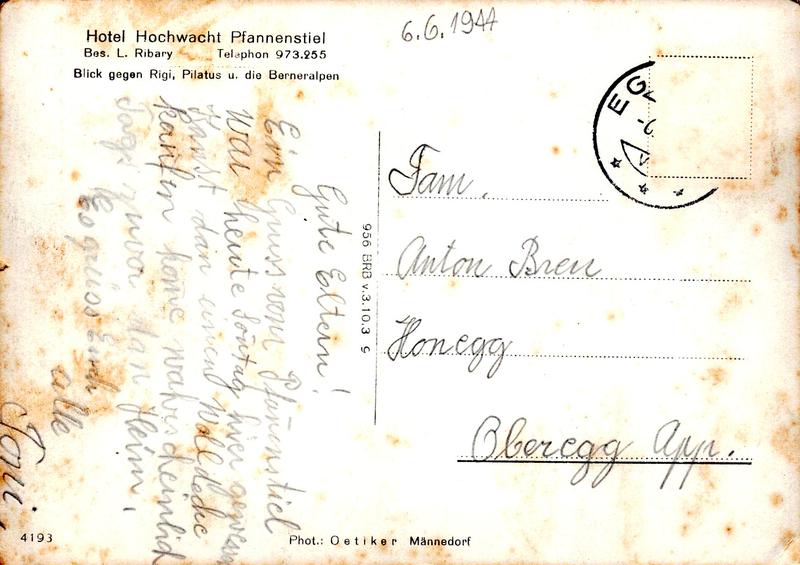 Hotel Hochwacht Pfannenstiel
Bes. L. Ribary Telephon 973.255
Blick gegen Rigi, Pilatus u. die Berneralpen
6.6.1944
EG
Gute Eltern!
Ein Gruss vom Pfanenstiel
War heute Sontag hier gewesen
dan einen
kaufen kome wahrscheinlich
dan Heim!
Es grüsst Euch
alle
Toni
956 BRB v. 3.10.39
Fam.
Anton Breu
Honegg
Oberegg App.
4193
Phot.: Oetiker Männedorf